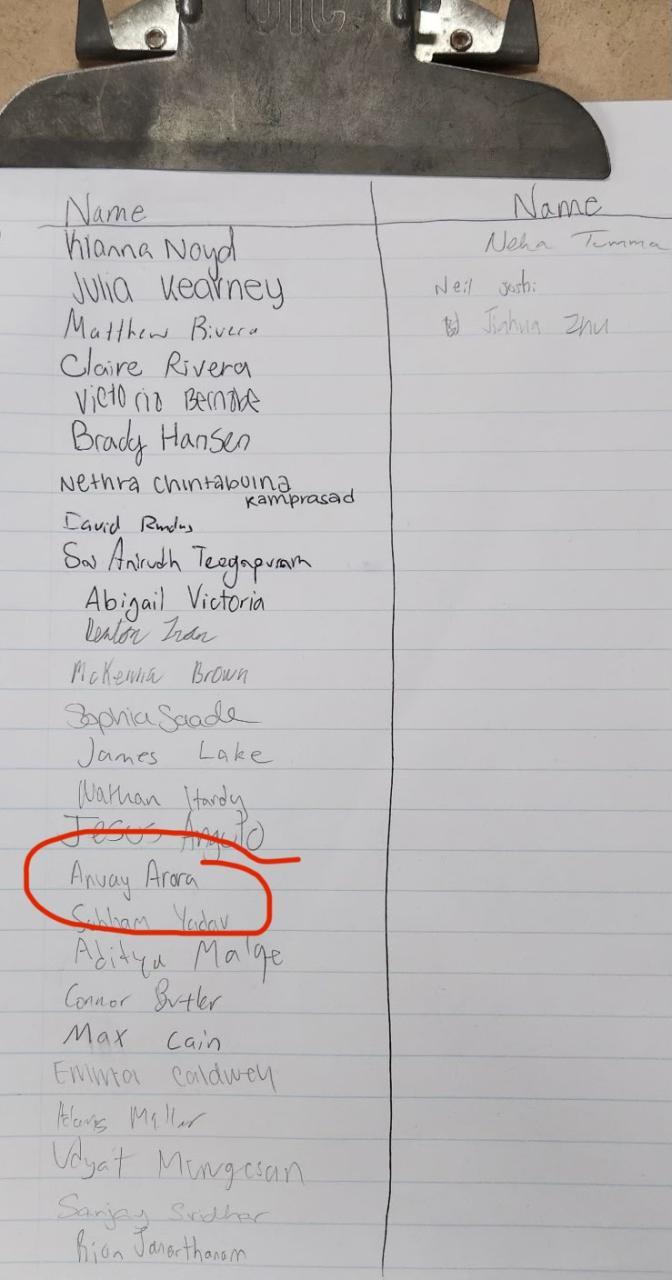 Name
Kianna Noyd
Julia Kearney
Matthew Rivera
Claire Rivera
Victoria Bernabe
Brady Hansen
Nethra Chintabuina
Kamprasad
David
Sai Anirudh Teegapuram
Abigail Victoria
McKenna Brown
Sophia Saade
James Lake
Nathan Hardy
Jesus Angulo
Anvay Arora
Subham Yadav
Aditya Malge
Connor Butler
Max Cain
Emma Caldwell
Miller
Udyat
Sanjay Sridhar
Rian Janarthanam
Name
Neha Tumma
Neil Joshi
Jinhua Zhu